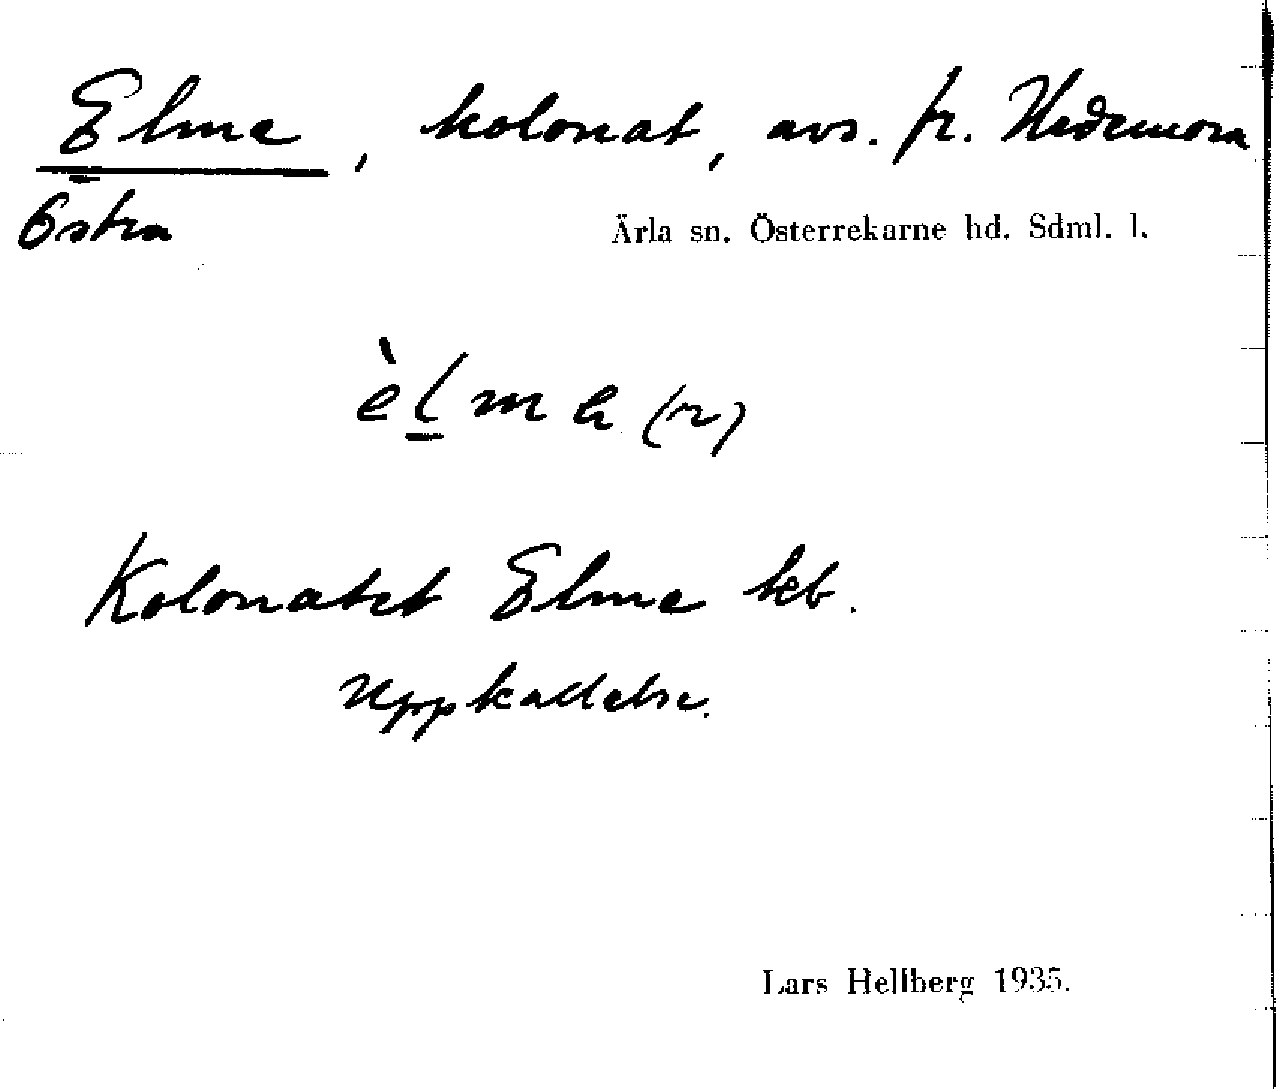 Elme, kolonat, avs. fr. Hedemora
Östra
Ärla sn. Österrekarne hd. Sdml. l.
èlme (r)
Kolonatet Elme kb.
Uppkallelse.
Lars Hellberg 1935.